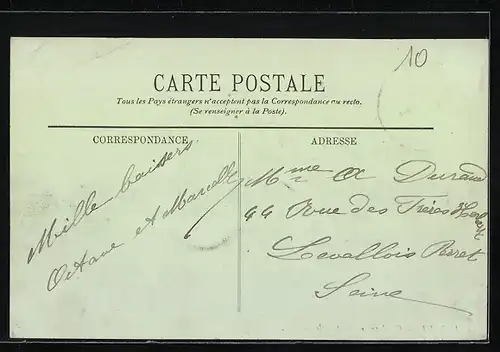 10
CARTE POSTALE
Tous les Pays étrangers n'acceptent pas la Correspondance au recto.
(Se renseigner à la Poste).
CORRESPONDANCE
ADRESSE
Mille baisers
Octave et Marcelle
Mme A Durand
44 Rue des Frères Herbert
Levallois Perret
Seine